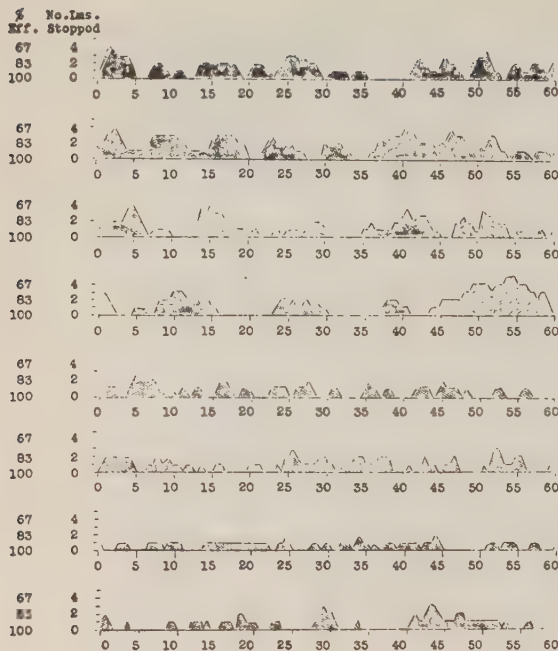 % No.Lms.
Eff. Stopped
67 4
83 2
100 0
0 5 10 15 20 25 30 35 40 45 50 55 60
67 4
83 2
100 0
0 5 10 15 20 25 30 35 40 45 50 55 60
67 4
83 2
100 0
0 5 10 15 20 25 30 35 40 45 50 55 60
67 4
83 2
100 0
0 5 10 15 20 25 30 35 40 45 50 55 60
67 4
83 2
100 0
0 5 10 15 20 25 30 35 40 45 50 55 60
67 4
83 2
100 0
0 5 10 15 20 25 30 35 40 45 50 55 60
67 4
83 2
100 0
0 5 10 15 20 25 30 35 40 45 50 55 60
67 4
83 2
100 0
0 5 10 15 20 25 30 35 40 45 50 55 60